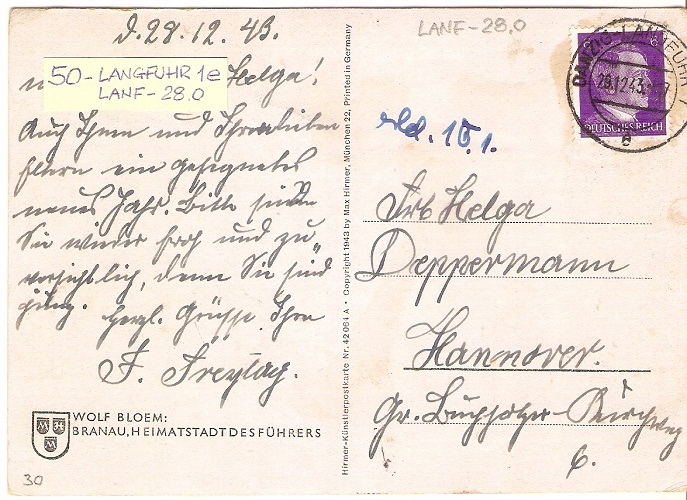 D. 28. 12. 43.
Helga!
50-LANGFUHR 1e
LANF-28.0
Auch Ihnen und Ihren lieben
Eltern ein gesegnetes
neues Jahr. Bitte
Sie wieder froh und zu-
versichtlich, denn Sie sind
jung. Herzl. Grüsse Ihre
F. Freytag.
WOLF BLOEM:
BRANAU, HEIMATSTADT DES FÜHRERS
30
Hirmer-Künstlerpostkarte Nr. 42061 A • Copyright 1943 by Max Hirmer, München 22, Printed in Germany
LANF-28.0
6
DEUTSCHES REICH
DANZIG-LANGFUHR 1
29.12.43
e
10.1.
Frl. Helga
Deppermann
Hannover.
Gr. Buchholzer Kirchweg
6.